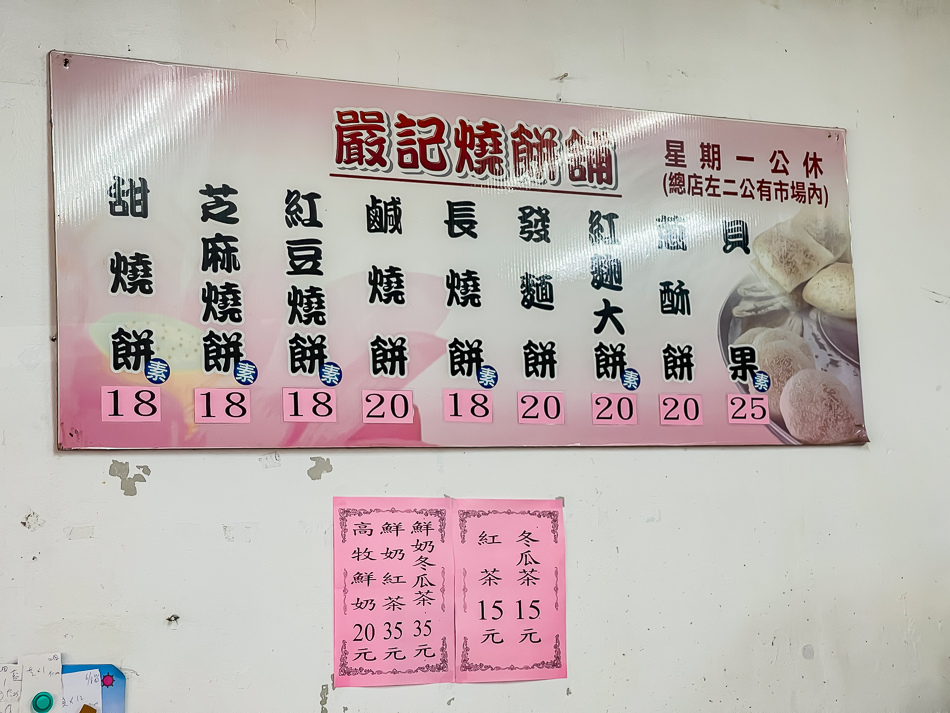 嚴記燒餅舖
星期一公休
(總店左二公有市場內)
甜燒餅素 18
芝麻燒餅素 18
紅豆燒餅素 18
鹹燒餅 20
長燒餅素 18
發麵餅 20
紅麵大餅素 20
酥餅 20
貝果素 25
高牧鮮奶20元
鮮奶紅茶35元
鮮奶冬瓜茶35元
紅茶15元
冬瓜茶15元